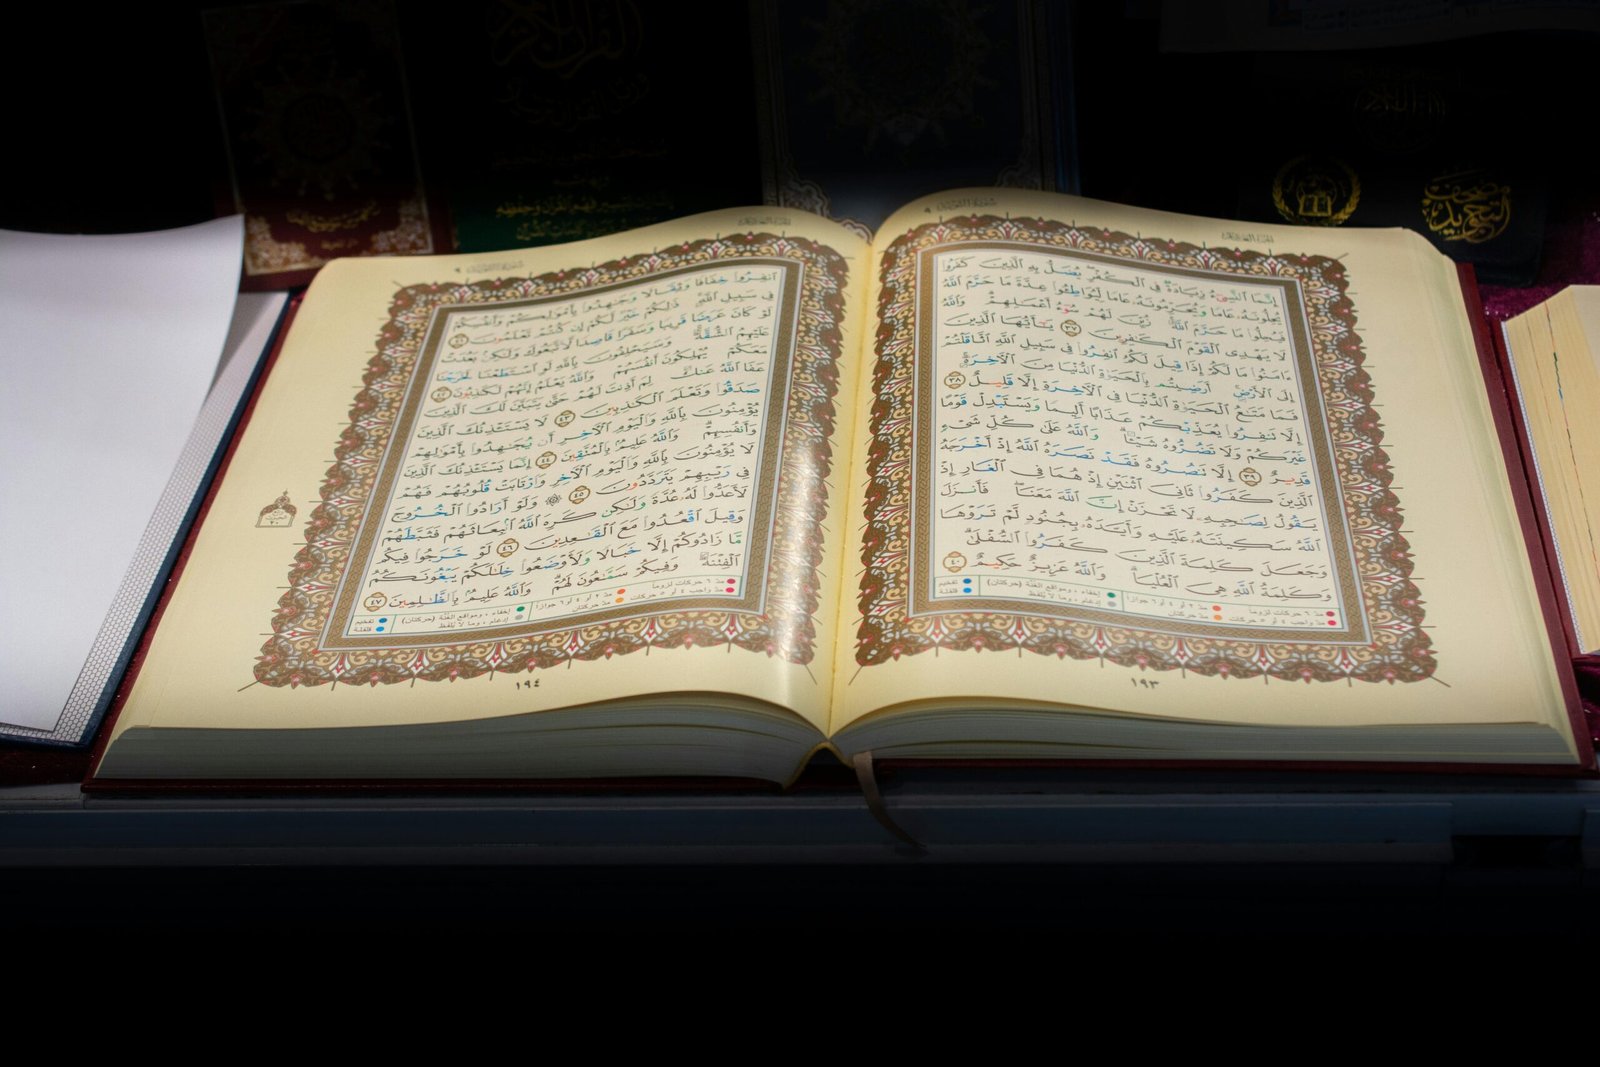 مصحف
التجويد
سُورَةُ التَّوْبَةِ ٩
إِنَّمَا ٱلنَّسِىٓءُ زِيَادَةٌ فِى ٱلْكُفْرِ يُضَلُّ بِهِ ٱلَّذِينَ كَفَرُوا۟
يُحِلُّونَهُۥ عَامًا وَيُحَرِّمُونَهُۥ عَامًا لِّيُوَاطِـُٔوا۟ عِدَّةَ مَا حَرَّمَ ٱللَّهُ
فَيُحِلُّوا۟ مَا حَرَّمَ ٱللَّهُ زُيِّنَ لَهُمْ سُوٓءُ أَعْمَـٰلِهِمْ وَٱللَّهُ
لَا يَهْدِى ٱلْقَوْمَ ٱلْكَـٰفِرِينَ ٣٧ يَـٰٓأَيُّهَا ٱلَّذِينَ
ءَامَنُوا۟ مَا لَكُمْ إِذَا قِيلَ لَكُمُ ٱنفِرُوا۟ فِى سَبِيلِ ٱللَّهِ ٱثَّاقَلْتُمْ
إِلَى ٱلْأَرْضِ أَرَضِيتُم بِٱلْحَيَوٰةِ ٱلدُّنْيَا مِنَ ٱلْـَٔاخِرَةِ
فَمَا مَتَـٰعُ ٱلْحَيَوٰةِ ٱلدُّنْيَا فِى ٱلْـَٔاخِرَةِ إِلَّا قَلِيلٌ ٣٨
إِلَّا تَنفِرُوا۟ يُعَذِّبْكُمْ عَذَابًا أَلِيمًا وَيَسْتَبْدِلْ قَوْمًا
غَيْرَكُمْ وَلَا تَضُرُّوهُ شَيْـًٔا وَٱللَّهُ عَلَىٰ كُلِّ شَىْءٍ
قَدِيرٌ ٣٩ إِلَّا تَنصُرُوهُ فَقَدْ نَصَرَهُ ٱللَّهُ إِذْ أَخْرَجَهُ
ٱلَّذِينَ كَفَرُوا۟ ثَانِىَ ٱثْنَيْنِ إِذْ هُمَا فِى ٱلْغَارِ إِذْ
يَقُولُ لِصَـٰحِبِهِۦ لَا تَحْزَنْ إِنَّ ٱللَّهَ مَعَنَا فَأَنزَلَ
ٱللَّهُ سَكِينَتَهُۥ عَلَيْهِ وَأَيَّدَهُۥ بِجُنُودٍ لَّمْ تَرَوْهَا
وَجَعَلَ كَلِمَةَ ٱلَّذِينَ كَفَرُوا۟ ٱلسُّفْلَىٰ
وَكَلِمَةُ ٱللَّهِ هِىَ ٱلْعُلْيَا وَٱللَّهُ عَزِيزٌ حَكِيمٌ ٤٠
مدّ ٦ حركات لزوماً مدّ ٢ أو ٤ أو ٦ جوازاً إخفاء، ومواقع الغُنَّة (حركتان) تفخيم
مدّ واجب ٤ أو ٥ حركات مدّ حركتان إدغام، وما لا يُلفَظ قلقلة
١٩٣
سُورَةُ التَّوْبَةِ ٩
ٱنفِرُوا۟ خِفَافًا وَثِقَالًا وَجَـٰهِدُوا۟ بِأَمْوَٰلِكُمْ وَأَنفُسِكُمْ
فِى سَبِيلِ ٱللَّهِ ذَٰلِكُمْ خَيْرٌ لَّكُمْ إِن كُنتُمْ تَعْلَمُونَ ٤١
لَوْ كَانَ عَرَضًا قَرِيبًا وَسَفَرًا قَاصِدًا لَّٱتَّبَعُوكَ وَلَـٰكِنۢ بَعُدَتْ
عَلَيْهِمُ ٱلشُّقَّةُ وَسَيَحْلِفُونَ بِٱللَّهِ لَوِ ٱسْتَطَعْنَا لَخَرَجْنَا
مَعَكُمْ يُهْلِكُونَ أَنفُسَهُمْ وَٱللَّهُ يَعْلَمُ إِنَّهُمْ لَكَـٰذِبُونَ ٤٢
عَفَا ٱللَّهُ عَنكَ لِمَ أَذِنتَ لَهُمْ حَتَّىٰ يَتَبَيَّنَ لَكَ ٱلَّذِينَ
صَدَقُوا۟ وَتَعْلَمَ ٱلْكَـٰذِبِينَ ٤٣ لَا يَسْتَـْٔذِنُكَ ٱلَّذِينَ
يُؤْمِنُونَ بِٱللَّهِ وَٱلْيَوْمِ ٱلْـَٔاخِرِ أَن يُجَـٰهِدُوا۟ بِأَمْوَٰلِهِمْ
وَأَنفُسِهِمْ وَٱللَّهُ عَلِيمٌۢ بِٱلْمُتَّقِينَ ٤٤ إِنَّمَا يَسْتَـْٔذِنُكَ ٱلَّذِينَ
لَا يُؤْمِنُونَ بِٱللَّهِ وَٱلْيَوْمِ ٱلْـَٔاخِرِ وَٱرْتَابَتْ قُلُوبُهُمْ فَهُمْ
فِى رَيْبِهِمْ يَتَرَدَّدُونَ ٤٥ ۞ وَلَوْ أَرَادُوا۟ ٱلْخُرُوجَ
لَأَعَدُّوا۟ لَهُۥ عُدَّةً وَلَـٰكِن كَرِهَ ٱللَّهُ ٱنۢبِعَاثَهُمْ فَثَبَّطَهُمْ
وَقِيلَ ٱقْعُدُوا۟ مَعَ ٱلْقَـٰعِدِينَ ٤٦ لَوْ خَرَجُوا۟ فِيكُم
مَّا زَادُوكُمْ إِلَّا خَبَالًا وَلَأَوْضَعُوا۟ خِلَـٰلَكُمْ يَبْغُونَكُمُ
ٱلْفِتْنَةَ وَفِيكُمْ سَمَّـٰعُونَ لَهُمْ وَٱللَّهُ عَلِيمٌۢ بِٱلظَّـٰلِمِينَ ٤٧
مدّ ٦ حركات لزوماً مدّ ٢ أو ٤ أو ٦ جوازاً إخفاء، ومواقع الغُنَّة (حركتان) تفخيم
مدّ واجب ٤ أو ٥ حركات مدّ حركتان إدغام، وما لا يُلفَظ قلقلة
١٩٤